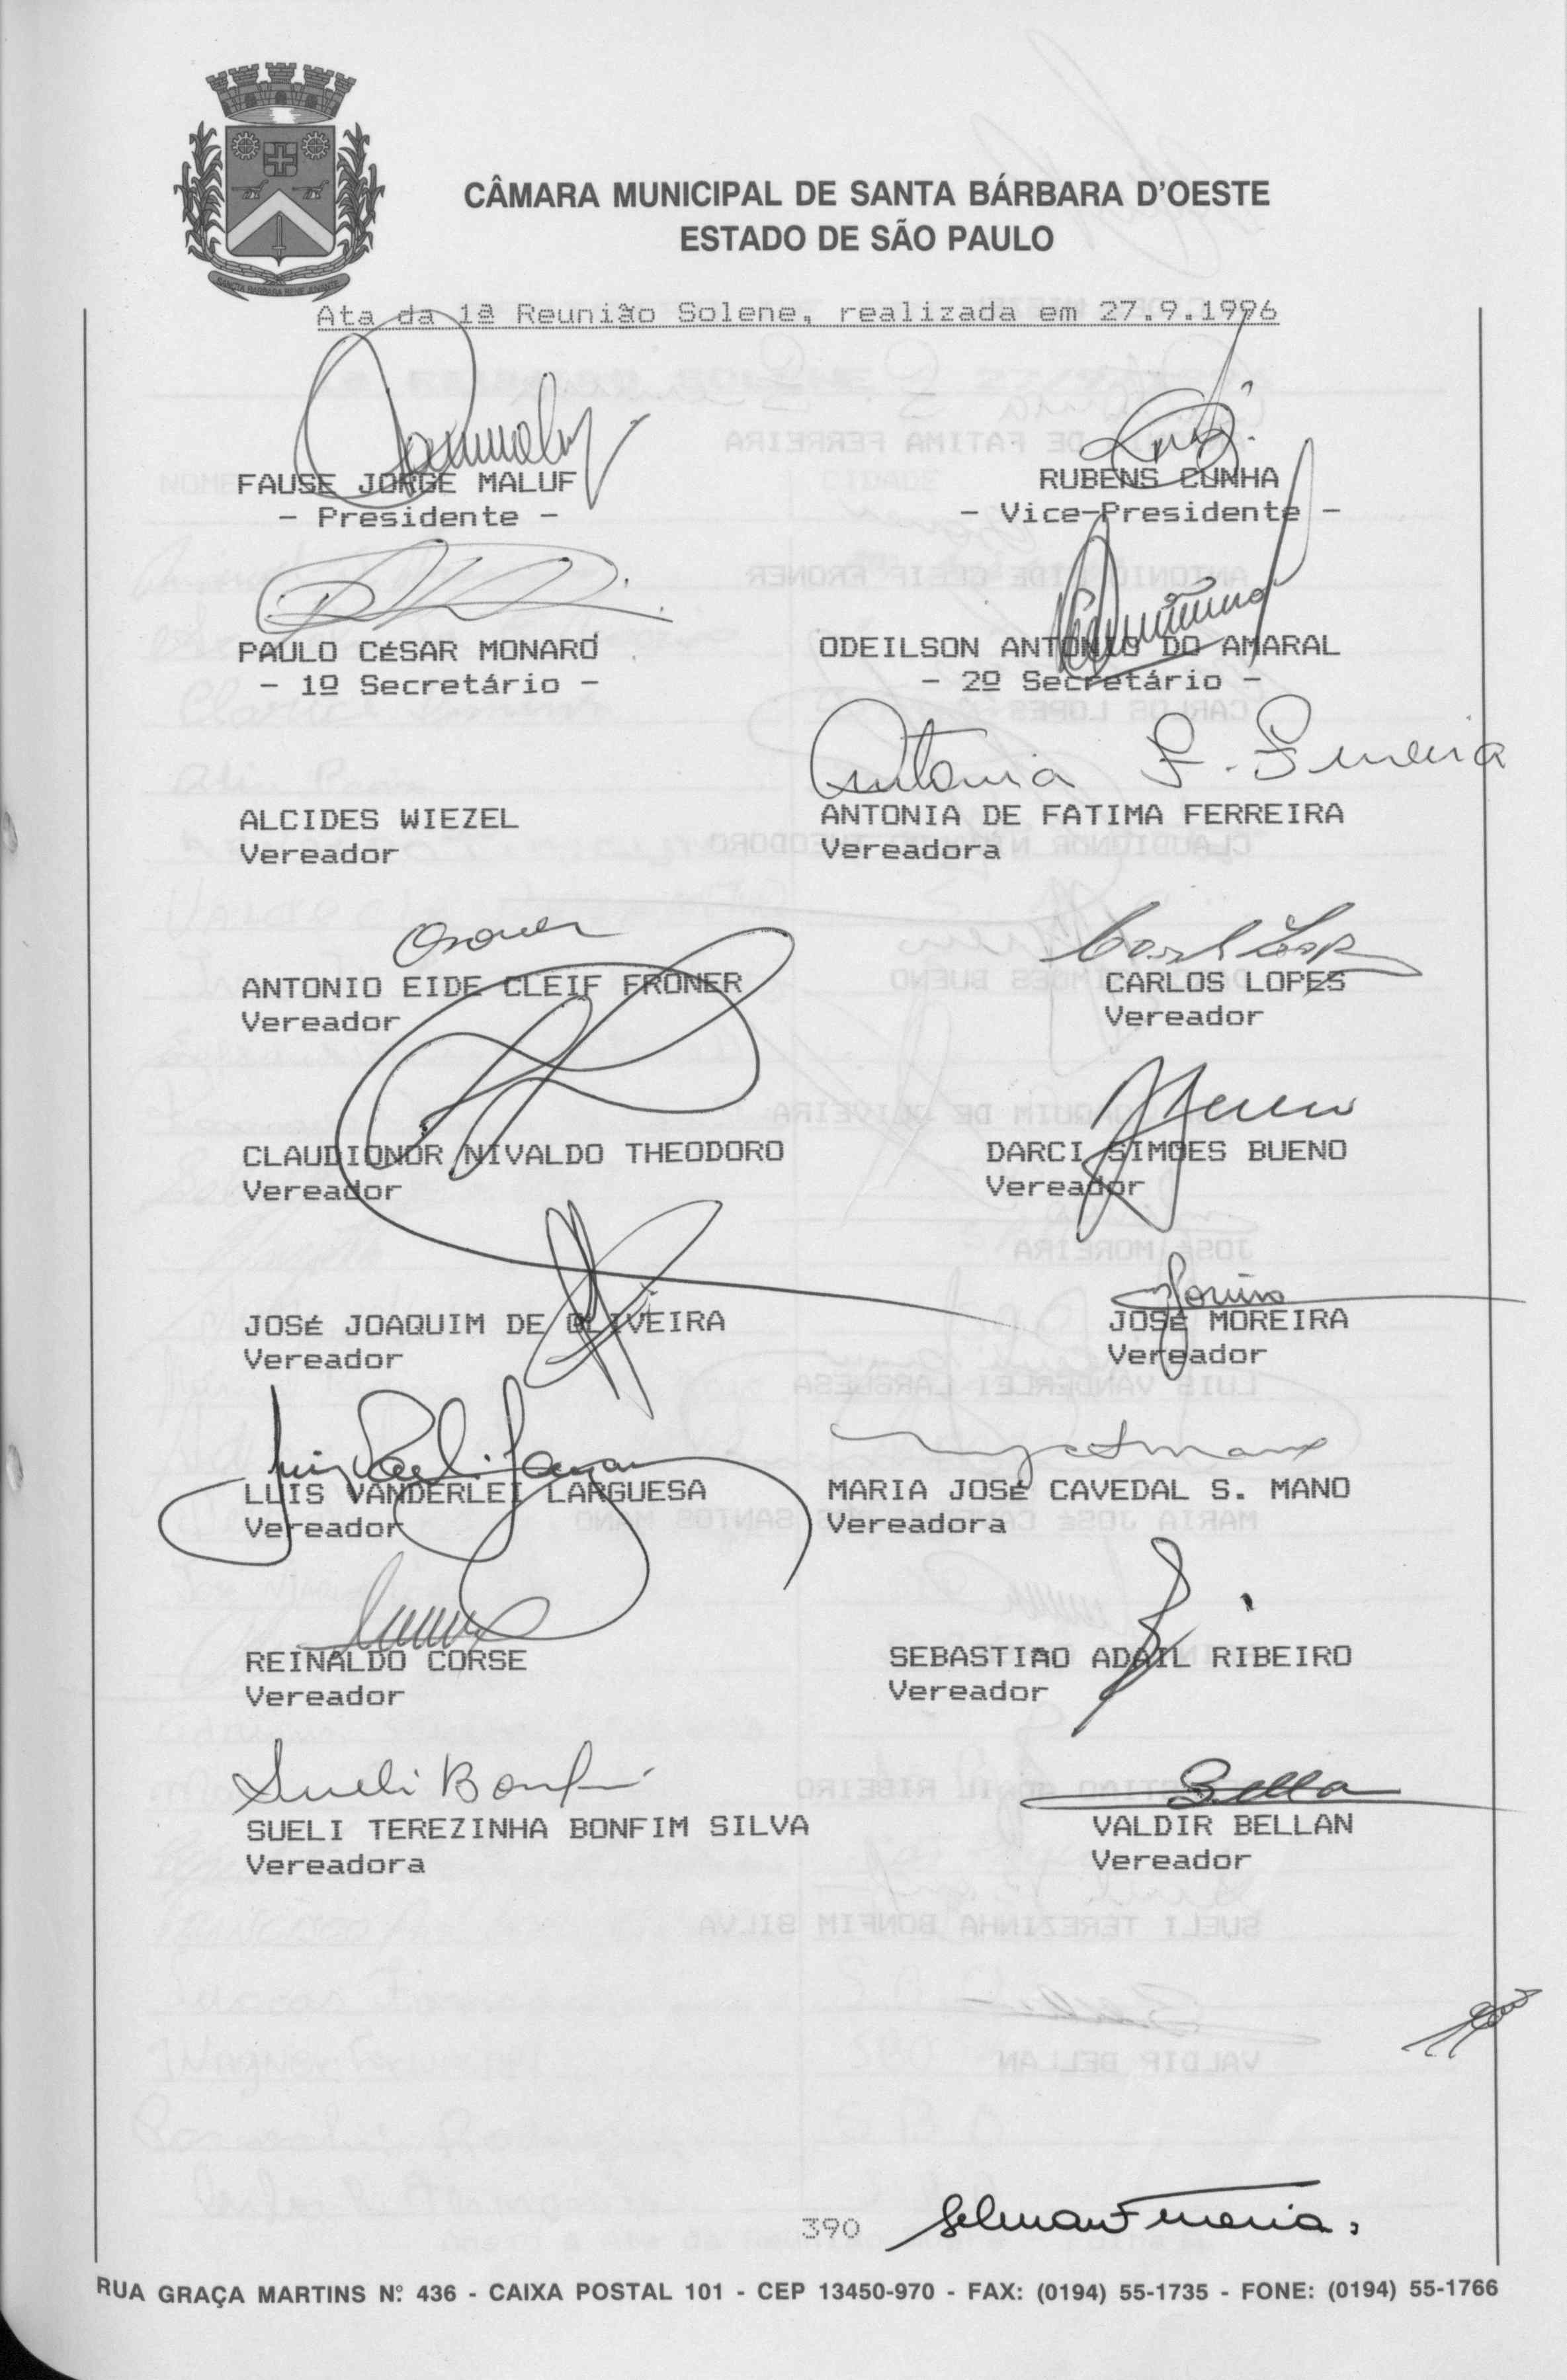 CÂMARA MUNICIPAL DE SANTA BÁRBARA D'OESTE
ESTADO DE SÃO PAULO
Ata da 1ª Reunião Solene, realizada em 27.9.1996
FAUSE JORGE MALUF
- Presidente -
RUBENS CUNHA
- Vice-Presidente -
PAULO CÉSAR MONARO
- 1º Secretário -
ODEILSON ANTONIO DO AMARAL
- 2º Secretário -
Antonia F. Ferreira
ALCIDES WIEZEL
Vereador
ANTONIA DE FATIMA FERREIRA
Vereadora
ANTONIO EIDE CLEIF FRONER
Vereador
CARLOS LOPES
Vereador
CLAUDIONOR NIVALDO THEODORO
Vereador
DARCI SIMOES BUENO
Vereador
JOSÉ JOAQUIM DE OLIVEIRA
Vereador
JOSÉ MOREIRA
Vereador
LUIS VANDERLEI LARGUESA
Vereador
MARIA JOSÉ CAVEDAL S. MANO
Vereadora
REINALDO CORSE
Vereador
SEBASTIÃO ADAIL RIBEIRO
Vereador
Sueli Bonfim
SUELI TEREZINHA BONFIM SILVA
Vereadora
Bella
VALDIR BELLAN
Vereador
390
RUA GRAÇA MARTINS Nº 436 - CAIXA POSTAL 101 - CEP 13450-970 - FAX: (0194) 55-1735 - FONE: (0194) 55-1766